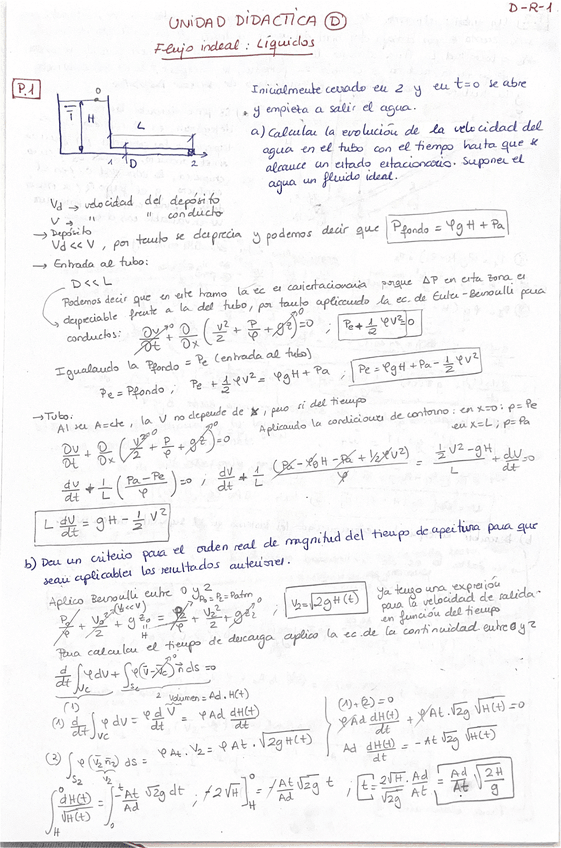 D-R-1
UNIDAD DIDACTICA (D)
Flujo indeal: Líquidos
P.1
0
H
L
1 D 2
Inicialmente cerrado en 2 y en t=0 se abre
y empieza a salir el agua.
a) Calcular la evolución de la velocidad del
agua en el tubo con el tiempo hasta que se
alcance un estado estacionario. Suponer el
agua un fluido ideal.
Vd → velocidad del depósito
V → " " conducto
→ Depósito
Vd << V, por tanto se desprecia y podemos decir que Pfondo = ρgH + Pa
→ Entrada al tubo:
D << L
Podemos decir que en este tramo la ec es cuasiestacionaria porque ΔP en esta zona es
despreciable frente a la del tubo, por tanto aplicando la ec. de Euler-Bernoulli para
conductos: ∂v/∂t + ∂/∂x (v²/2 + P/ρ + gz) = 0 ; Pe + 1/2 ρv² = 0
Igualando la Pfondo = Pe (entrada al tubo)
Pe = Pfondo ; Pe + 1/2 ρv² = ρgH + Pa ; Pe = ρgH + Pa - 1/2 ρv²
→ Tubo:
Al ser A=cte, la V no depende de x, pero si del tiempo
Aplicando la condiciones de contorno: en x=0: p=Pe
en x=L; p=Pa
∂v/∂t + ∂/∂x (v²/2 + P/ρ + gz) = 0
dv/dt + 1/L (Pa-Pe/ρ) = 0 ; dv/dt + 1/L (Pa - ρgH - Pa + 1/2 ρv²)/ρ = (1/2 v² - gH)/L + dv/dt = 0
L dv/dt = gH - 1/2 v²
b) Dar un criterio para el orden real de magnitud del tiempo de apertura para que
sean aplicables los resultados anteriores.
Aplico Bernoulli entre 0 y 2
P0 = P2 = Patm
P0/ρ + V0²/2 + gz0 = P2/ρ + V2²/2 + gz2 ; V2 = √2gH(t)
Ya tengo una expresión
para la velocidad de salida
en función del tiempo
Para calcular el tiempo de descarga aplico la ec. de la continuidad entre 0 y 2
d/dt ∫Vc ρdv + ∫Sc ρ(v̄-v̄c) n̄ ds = 0
(1) 2 Volumen = Ad · H(t)
(1) d/dt ∫Vc ρ dv = ρ dV/dt = ρ Ad dH(t)/dt
(2) ∫S2 ρ(v̄2 n̄2) ds = ρ At · V2 = ρ At · √2gH(t)
(1)+(2)=0
ρ Ad dH(t)/dt + ρ At · √2g √H(t) = 0
Ad dH(t)/dt = -At √2g √H(t)
∫H0 dH(t)/√H(t) = ∫0t -At/Ad √2g dt ; 2√H]H0 = -At/Ad √2g t ; t = 2√H/√2g · Ad/At = Ad/At √2H/g